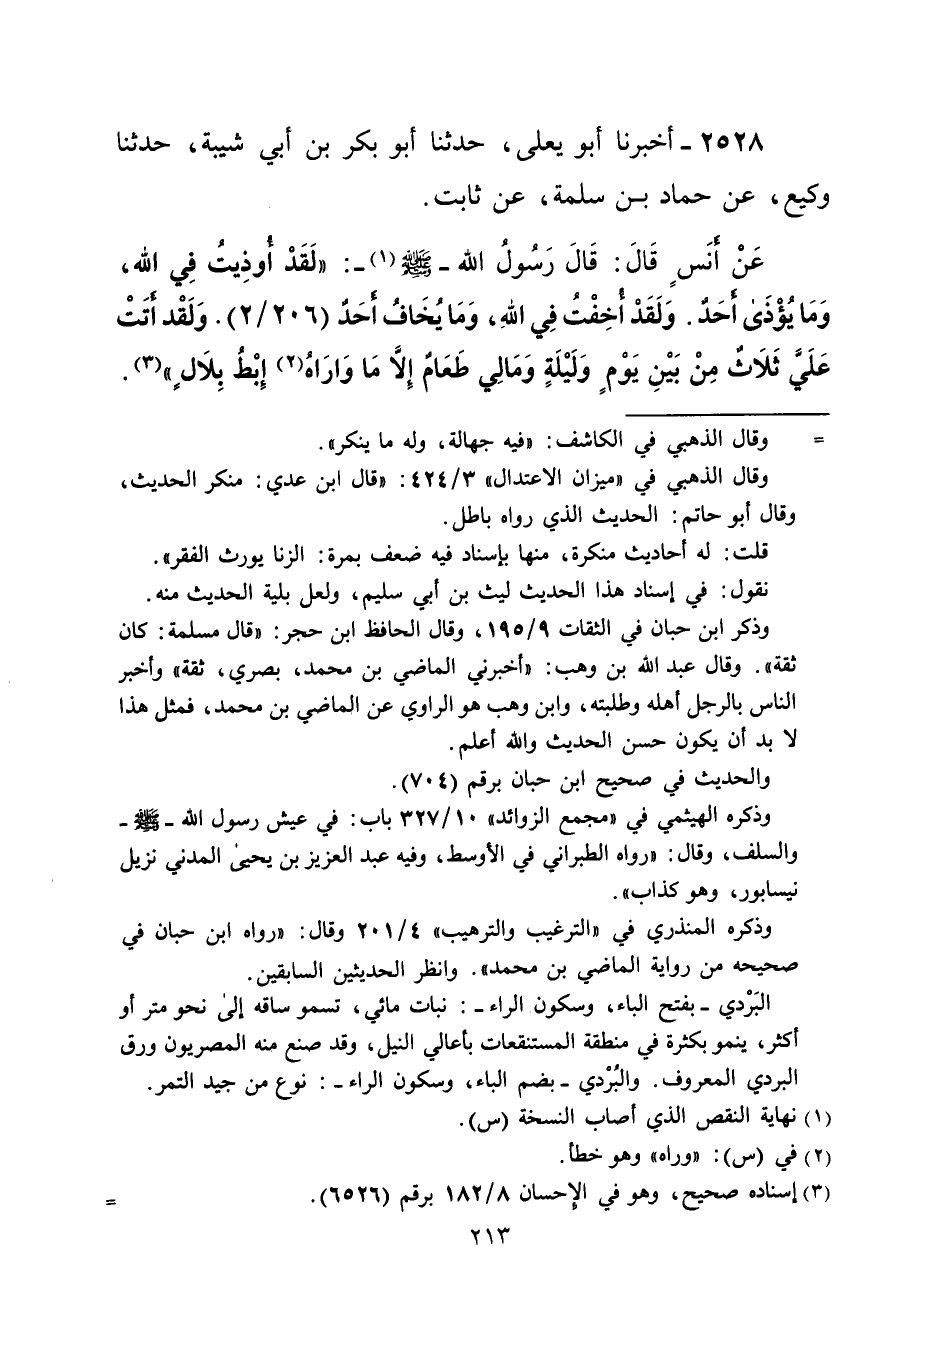 ٢٥٢٨ ـ أخبرنا أبو يعلى، حدثنا أبو بكر بن أبي شيبة، حدثنا
وكيع، عن حماد بـن سلمة، عن ثابت.
عَنْ أَنَسٍ قَالَ: قَالَ رَسُولُ الله ـ ﷺ(١) ـ: «لَقَدْ أُوذِيتُ فِي الله،
وَمَا يُؤْذَىٰ أَحَدٌ. وَلَقَدْ أُخِفْتُ فِي اللهِ، وَمَا يُخَافُ أَحَدٌ (٢/٢٠٦). وَلَقْد أَتَتْ
عَلَيَّ ثَلَاثٌ مِنْ بَيْنِ يَوْمٍ وَلَيْلَةٍ وَمَالِي طَعَامٌ إِلَّا مَا وَارَاهُ(٢) إِبْطُ بِلَالٍ»(٣).
= وقال الذهبي في الكاشف: «فيه جهالة، وله ما ينكر».
وقال الذهبي في «ميزان الاعتدال» ٤٢٤/٣: «قال ابن عدي: منكر الحديث،
وقال أبو حاتم: الحديث الذي رواه باطل.
قلت: له أحاديث منكرة، منها بإسناد فيه ضعف بمرة: الزنا يورث الفقر».
نقول: في إسناد هذا الحديث ليث بن أبي سليم، ولعل بلية الحديث منه.
وذكر ابن حبان في الثقات ١٩٥/٩، وقال الحافظ ابن حجر: «قال مسلمة: كان
ثقة». وقال عبد الله بن وهب: «أخبرني الماضي بن محمد، بصري، ثقة» وأخبر
الناس بالرجل أهله وطلبته، وابن وهب هو الراوي عن الماضي بن محمد، فمثل هذا
لا بد أن يكون حسن الحديث والله أعلم.
والحديث في صحيح ابن حبان برقم (٧٠٤).
وذكره الهيثمي في «مجمع الزوائد» ٣٢٧/١٠ باب: في عيش رسول الله ـ ﷺ ـ
والسلف، وقال: «رواه الطبراني في الأوسط، وفيه عبد العزيز بن يحيىٰ المدني نزيل
نيسابور، وهو كذاب».
وذكره المنذري في «الترغيب والترهيب» ٢٠١/٤ وقال: «رواه ابن حبان في
صحيحه من رواية الماضي بن محمد». وانظر الحديثين السابقين.
البَرْدي ـ بفتح الباء، وسكون الراء ـ: نبات مائي، تسمو ساقه إلىٰ نحو متر أو
أكثر، ينمو بكثرة في منطقة المستنقعات بأعالي النيل، وقد صنع منه المصريون ورق
البردي المعروف. والبُرْدي ـ بضم الباء، وسكون الراء ـ: نوع من جيد التمر.
(١) نهاية النقص الذي أصاب النسخة (س).
(٢) في (س): «وراه» وهو خطأ.
(٣) إسناده صحيح، وهو في الإحسان ١٨٢/٨ برقم (٦٥٢٦). =
٢١٣